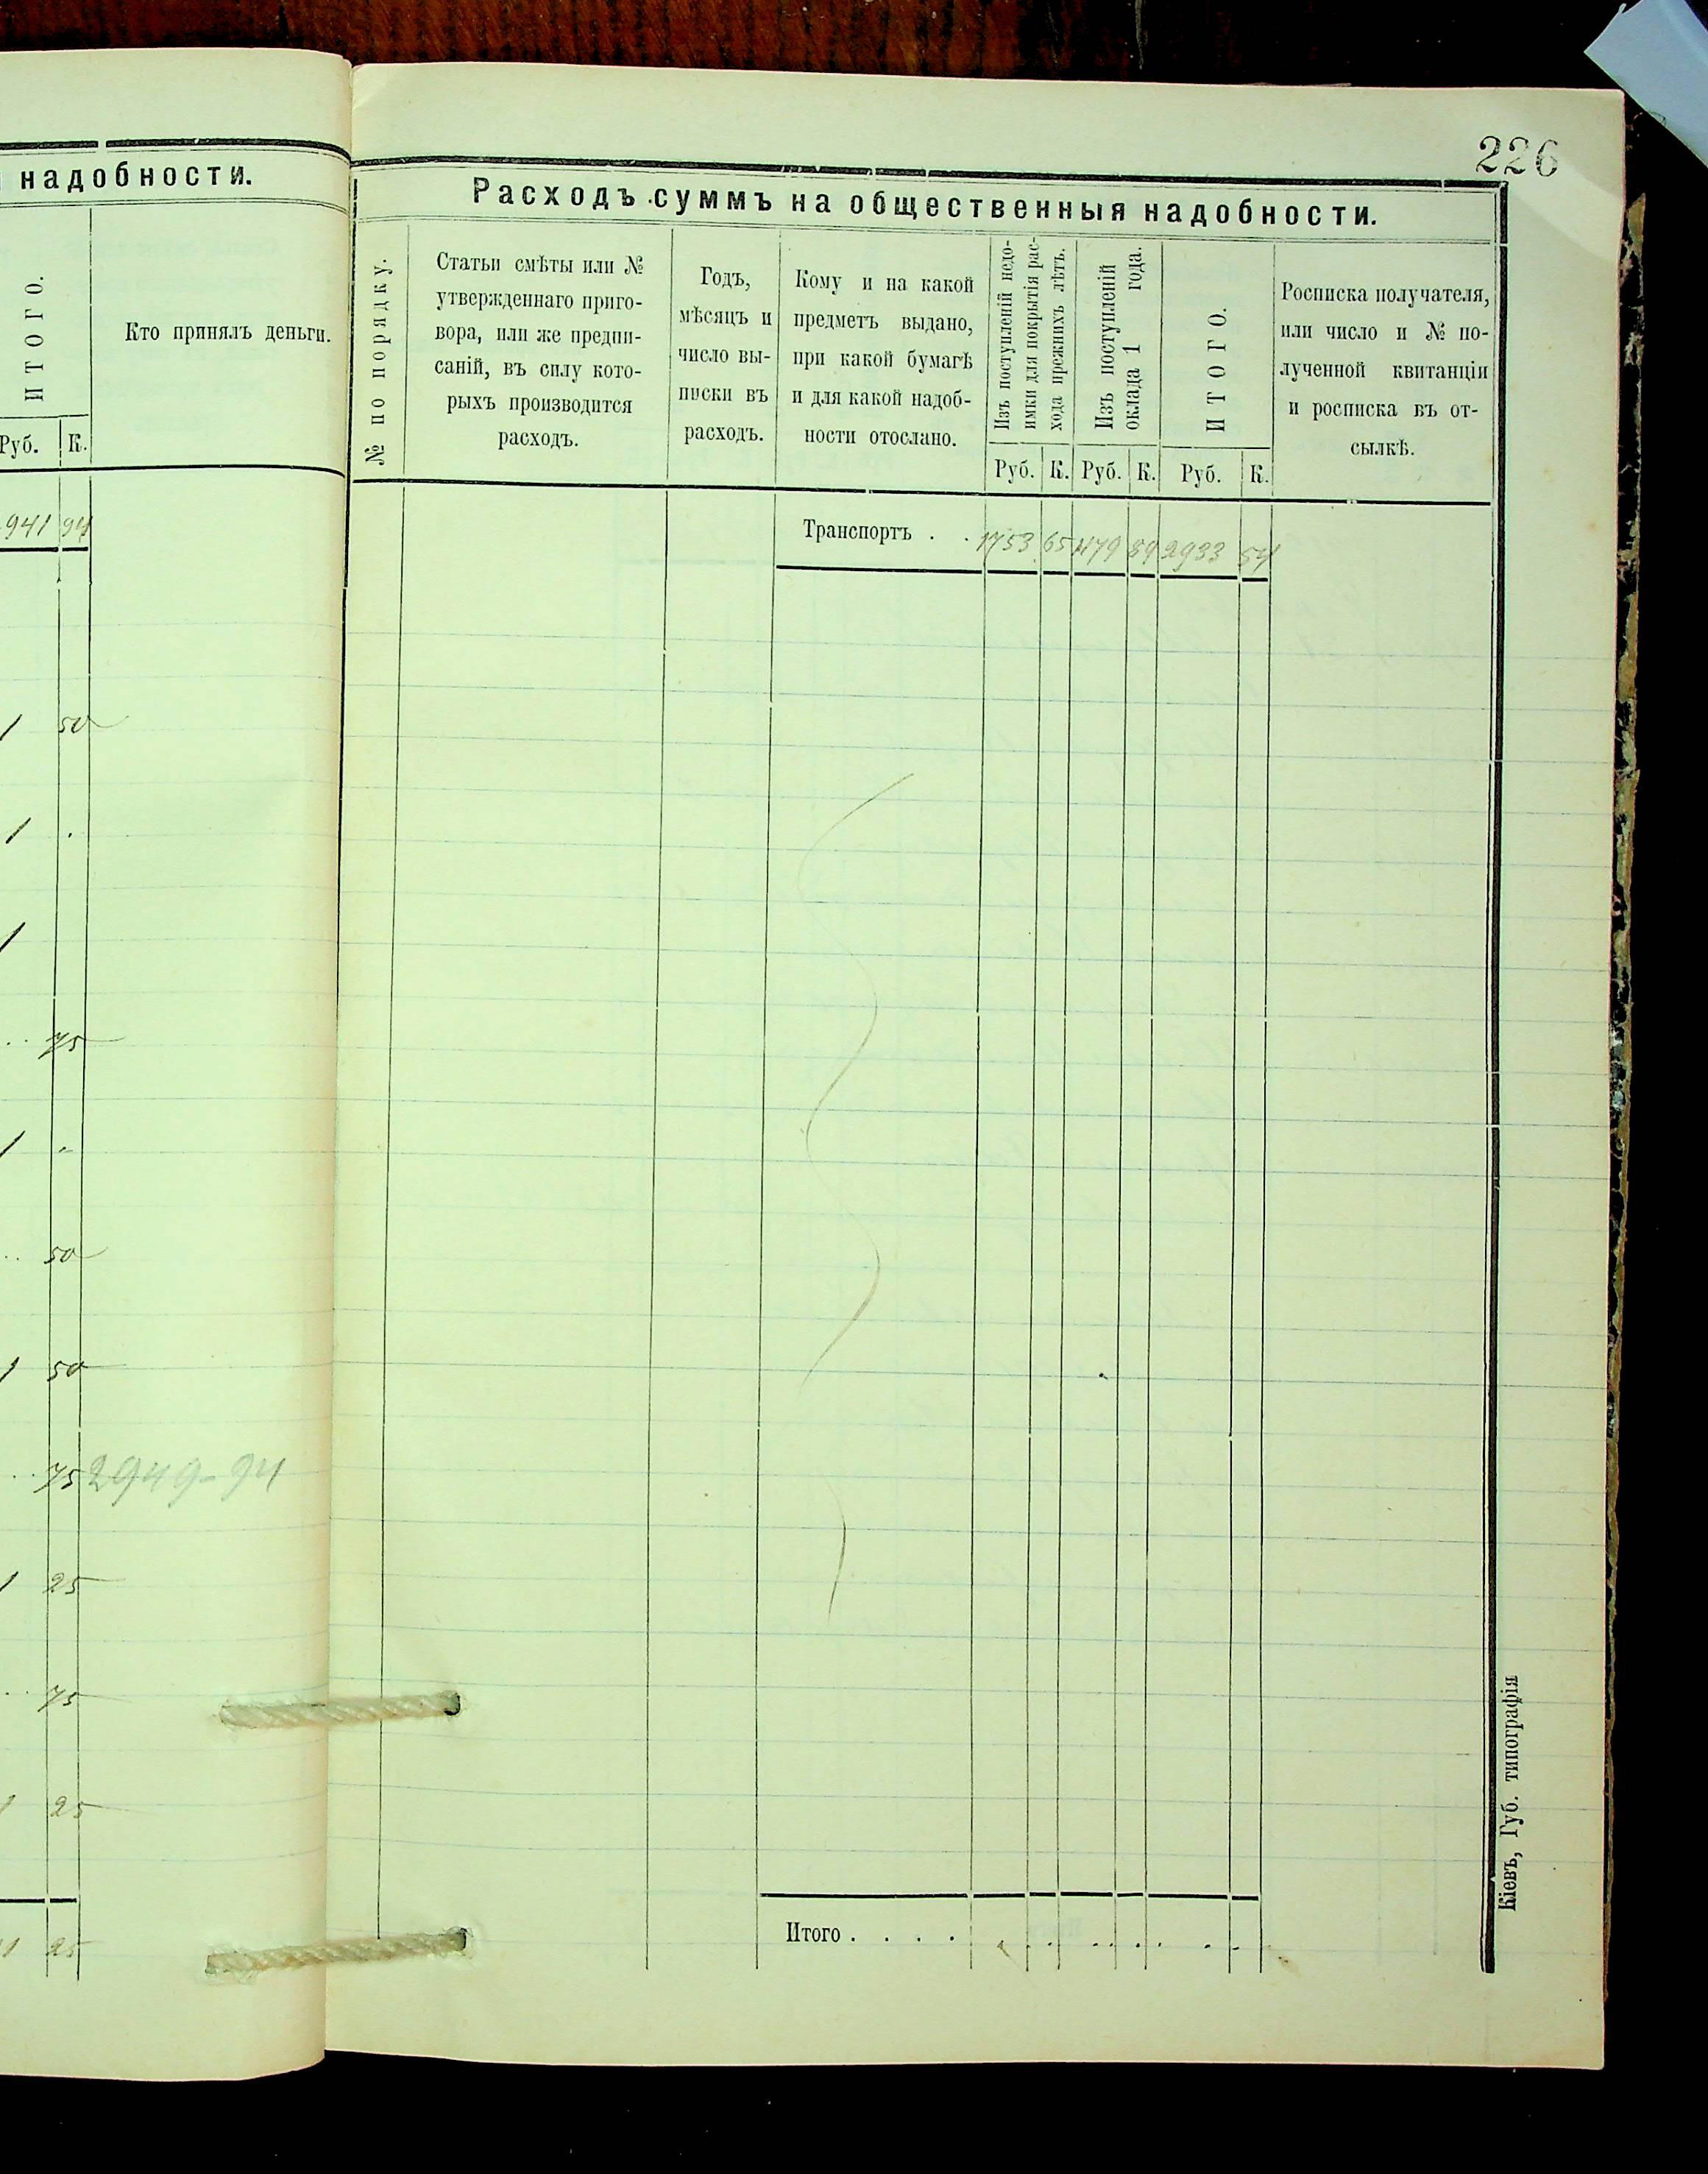 надобности.
ИТОГО.
Кто принялъ деньги.
Руб. К.
941 94
1 50
1 .
1
.. 75
1 -
.. 50
1 50
.. 75 2949-94
1 25
.. 75
1 25
1 25
226
Расходъ суммъ на общественныя надобности.
№ по порядку.
Статьи смѣты или №
утвержденнаго приго-
вора, или же предпи-
саній, въ силу кото-
рыхъ производится
расходъ.
Годъ,
мѣсяцъ и
число вы-
писки въ
расходъ.
Кому и на какой
предметъ выдано,
при какой бумагѣ
и для какой надоб-
ности отослано.
Изъ поступленій недо-
имки для покрытія рас-
хода прежнихъ лѣтъ.
Изъ поступленій
оклада 1 года.
ИТОГО.
Росписка получателя,
или число и № по-
лученной квитанціи
и росписка въ от-
сылкѣ.
Руб. К. Руб. К. Руб. К.
Транспортъ . . 1753 65 1179 89 2933 54
Итого . . . .
Кіевъ, Губ. типографія